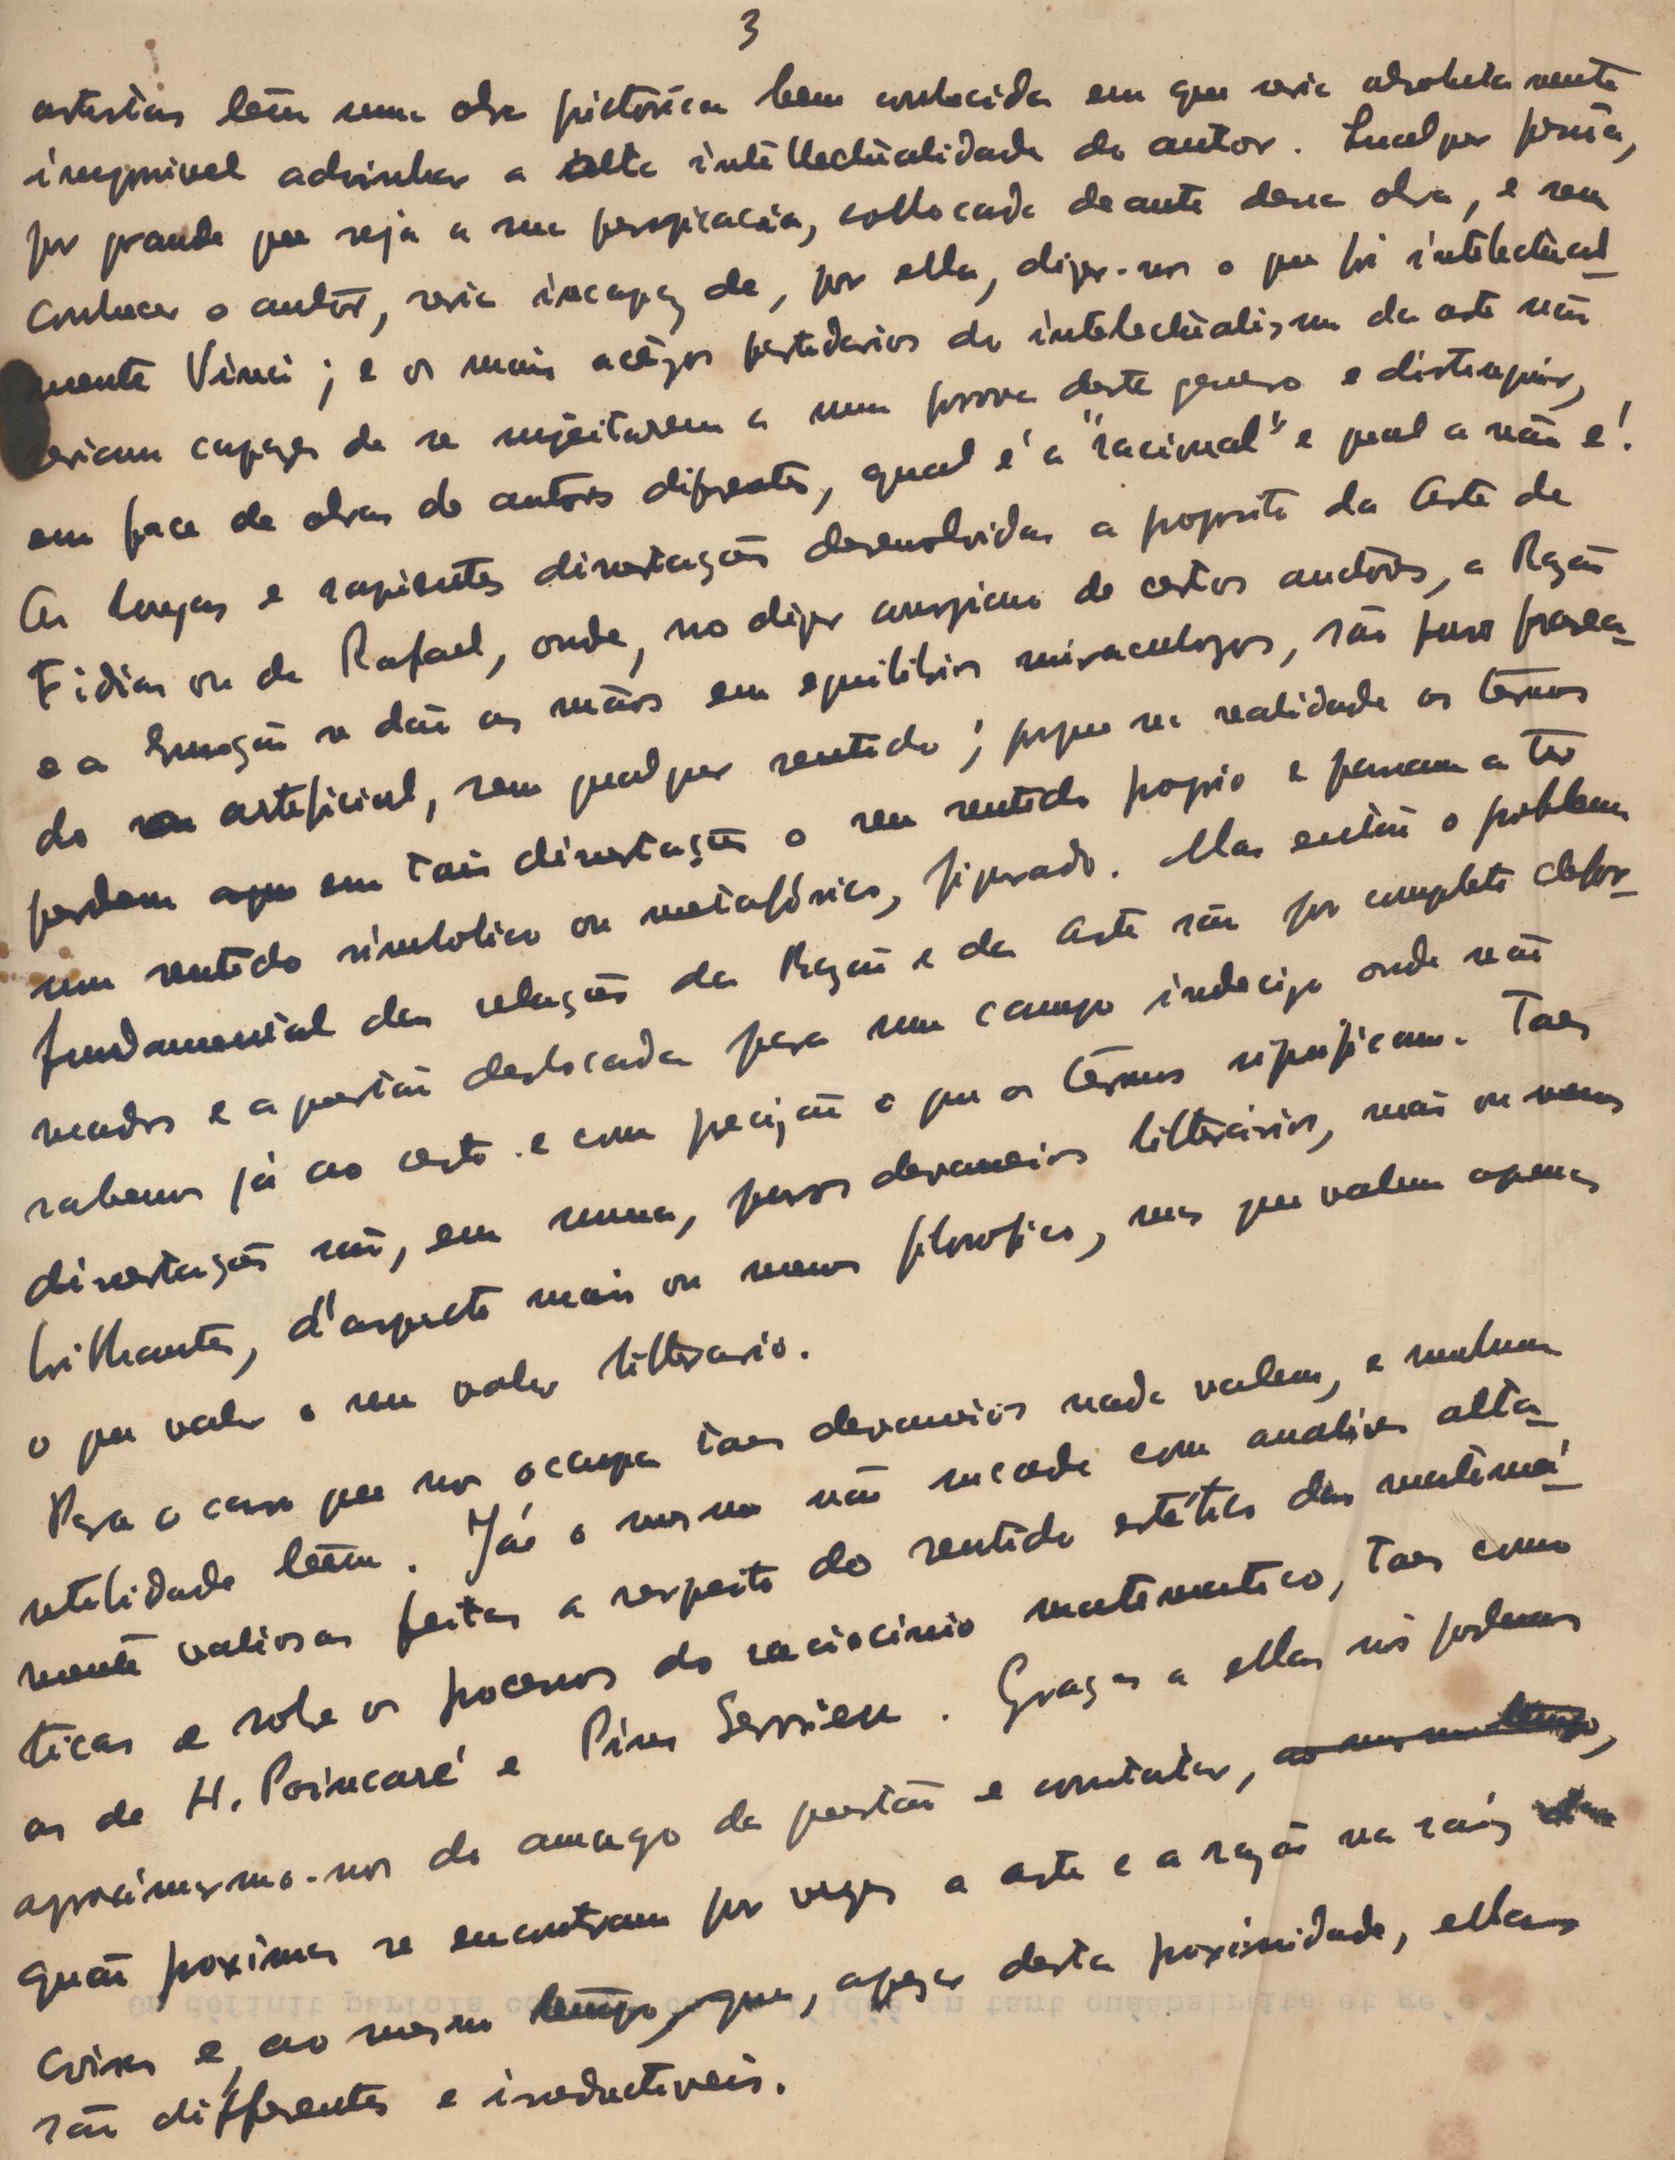 3
artistas têm uma obra pictórica bem conhecida em que seria absoluta mente
impossivel adivinhar a alta intellectualidade do autor. Qualquer pessoa,
por grande que seja a sua perspicacia, collocada deante dessa obra, e sem
conhecer o autor, seria incapaz de, por ella, dizer-nos o que foi intelectual_
mente Vinci; e os mais acêzos partidarios do intelectualismo da arte não
seriam capazes de se sujeitarem a uma prova deste genero e distinguir,
em face de obras de autores diferentes, qual é a "racional" e qual a não é!
As longas e sapientes dissertações desenvolvidas a proposito da Arte de
Fidias ou de Rafael, onde, no dizer conspicuo de certos auctores, a Razão
e a Emoção se dão as mãos em equilibrios miraculozos, são puro fraseа_
do artificial, sem qualquer sentido; porque na realidade os têrmos
perdem em tais dissertações o seu sentido proprio e passam a ter
um sentido simbolico ou metafórico, figurado. Mas então o problema
fundamental das relações da Razão e da Arte são por completo defor_
mados e a questão deslocada para um campo indecizo onde não
sabemos já ao certo e com precizão o que os têrmos significam. Taes
dissertações são, em suma, puros devaneios litterários, mais ou menos
brilhantes, d'aspecto mais ou menos filosofico, mas que valem apenas
o que valer o seu valor litterario.
Para o caso que nos occupa taes devaneios nada valem, e nenhuma
utilidade têem. Já o mesmo não sucede com analises alta_
mente valiosas feitas a respeito do sentido estético das matemá_
ticas e sobre os processos do raciocinio matematico, taes como
as de H. Poincaré e Pius Servien. Graças a ellas nós podemos
aproximarmo-nos do amago da questão e constatar, ao mesmo tempo,
quão proximas se encontram por vezes a arte e a razão na raiz das
coisas e, ao mesmo tempo, que, apezar desta proximidade, ellas
são differentes e irreductiveis.